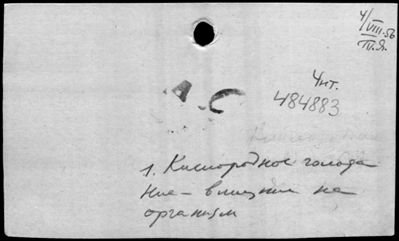 4/VIII-56
IV.Я.
Чит.
484883
А. С
1. Кислородное голода
ние – влияние на
организм